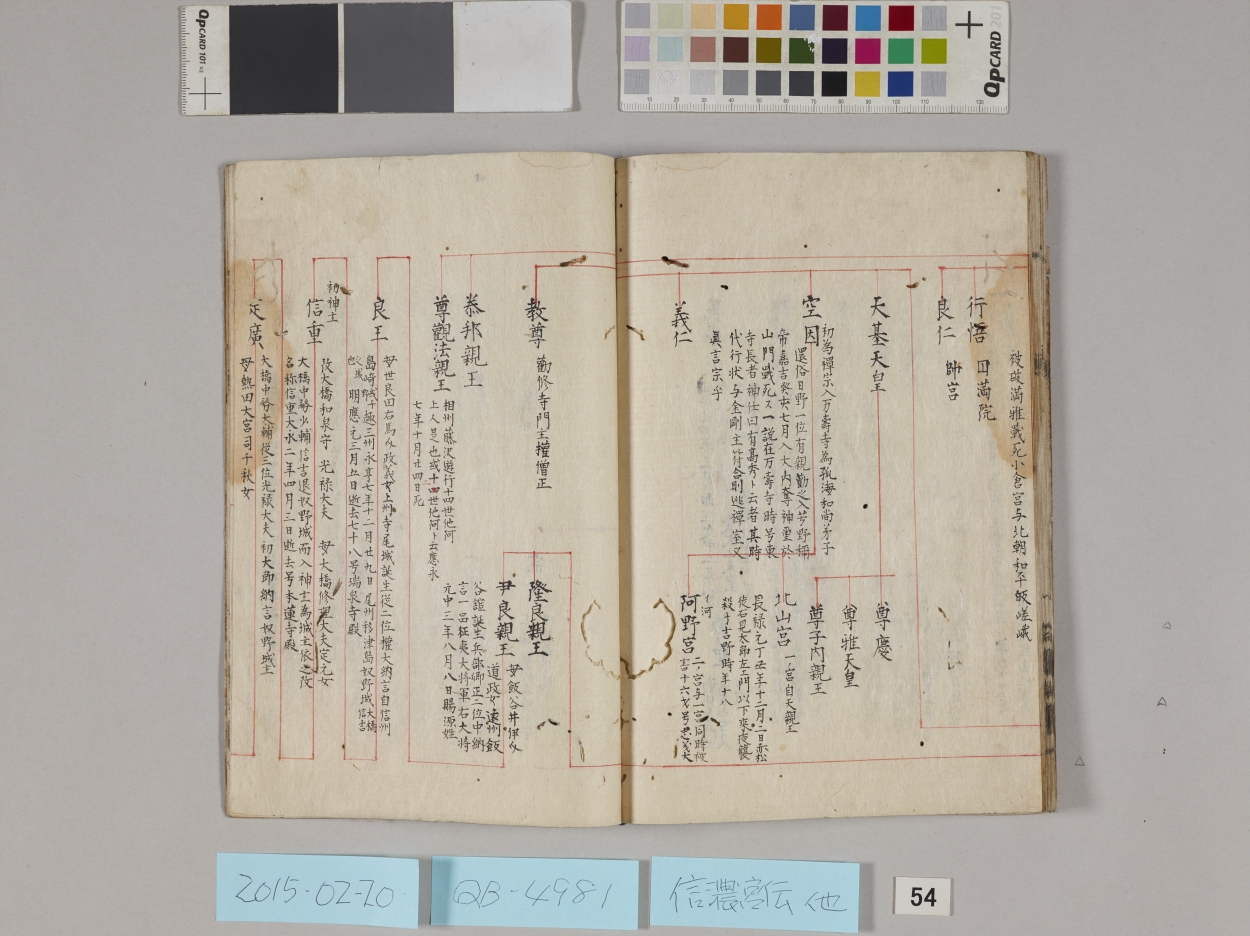 被破満雅戦死小倉宮与北朝和平皈嵯峨
行悟
円満院
良仁
帥宮
天基天皇
尊慶
尊雅天皇
尊子内親王
空因
初為禅宗入万寿寺為孤海和尚弟子
還俗日野一位有親勧之入芳野称
帝嘉吉癸亥七月入大内奪神璽於
山門戦死又一説在万寿寺時号東
寺長者神仕曰有高秀ト云者其時
代行状与金剛主符合則逃禅室又
真言宗乎
北山宮
一ノ宮自天親王
長禄元丁丑年十二月二日赤松
彼石見太郎左ェ門以下来夜襲
殺于吉野時年十八
イ河
阿野宮
二ノ宮与一宮同時被
害十六才号忠義大
義仁
教尊
勧修寺門主権僧正
恭邦親王
尊観法親王
相州藤沢遊行十四世他阿
上人是也或十四世他阿ト云應永
七年十月廿四日死
隆良親王
尹良親王
母飯谷井伊
道政女遠州飯
谷館誕生兵部卿正二位中納
言一品征夷大将軍右大将
元中三年八月八日賜源姓
良王
母世良田右馬政義女上州寺尾城誕生従二位権大納言自信州
島崎城十極三州永享七年十二月廿九日尾州移津島奴野城大橋
信吉
明應元三月五日逝去七十八号瑞泉寺殿
初神主
信重
改大橋和泉守 光禄大夫 母大橋修理大夫定元女
大橋中務少輔信吉退奴野城而入神主為城主依之改
名称信重大永二年四月三日逝去号本蓮寺殿
定廣
大橋中務大輔従三位光禄大夫初大郎納言奴野城主
母熱田大宮司千秋女
QPCARD 101 v2
QPCARD 201
10 20 30 40 50 60 70 80 90 100 110 130
2015-02-20
QB-4981
信濃宮伝 他
54